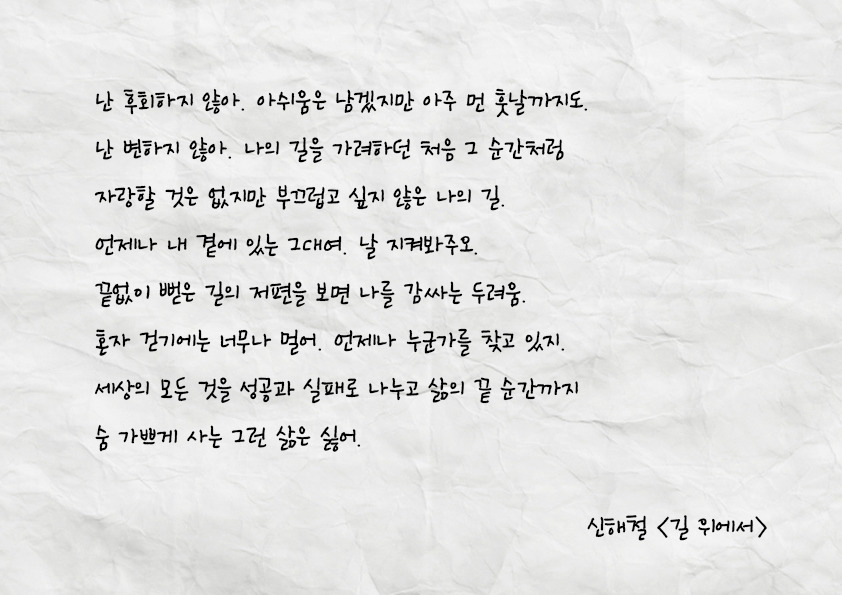 난 후회하지 않아. 아쉬움은 남겠지만 아주 먼 훗날까지도.
난 변하지 않아. 나의 길을 가려하던 처음 그 순간처럼
자랑할 것은 없지만 부끄럽고 싶지 않은 나의 길.
언제나 내 곁에 있는 그대여. 날 지켜봐주오.
끝없이 뻗은 길의 저편을 보면 나를 감싸는 두려움.
혼자 걷기에는 너무나 멀어. 언제나 누군가를 찾고 있지.
세상의 모든 것을 성공과 실패로 나누고 삶의 끝 순간까지
숨 가쁘게 사는 그런 삶은 싫어.
신해철 <길 위에서>